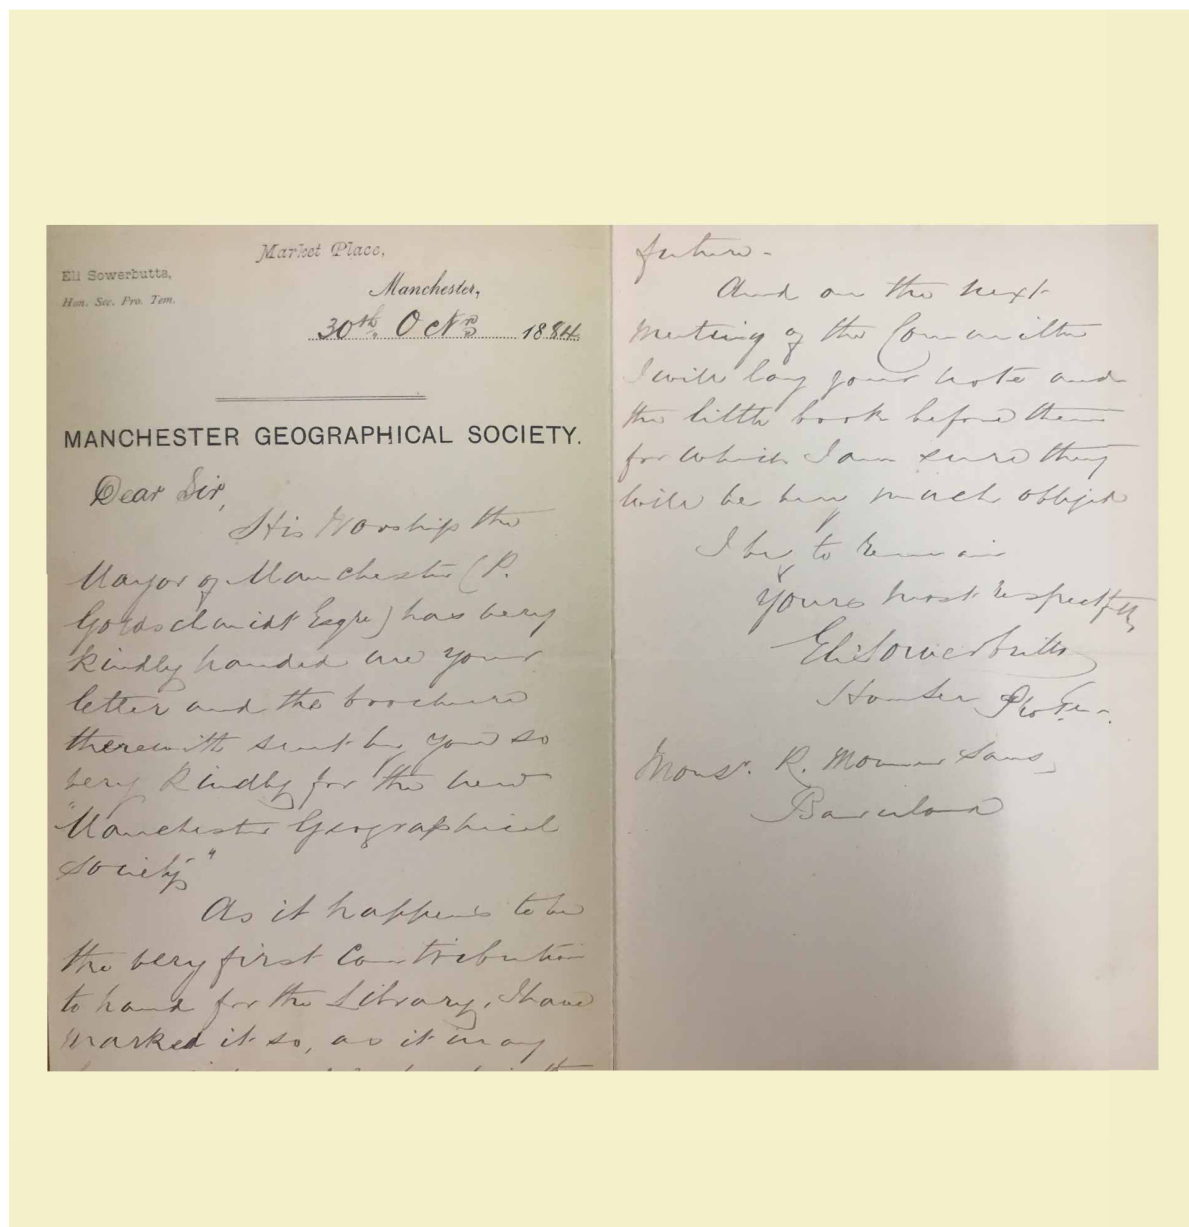 Market Place,
Eli Sowerbutts,
Hon. Sec. Pro. Tem.
Manchester,
30th Octr 1884
MANCHESTER GEOGRAPHICAL SOCIETY.
Dear Sir,
His Worship the
Mayor of Manchester (P.
Goldschmidt Esqre) has very
kindly handed me your
letter and the brochure
therewith sent by you so
very kindly for the new
"Manchester Geographical
Society"
As it happens to be
the very first contribution
to hand for the Library, I have
marked it so, as it may
future.
And on the next
meeting of the Committee
I will lay your note and
the little book before them
for which I am sure they
will be very much obliged
I beg to remain
Yours most respectfully
Eli Sowerbutts
Hon Sec Pro Tem.
Monsr. R.
Barcelona